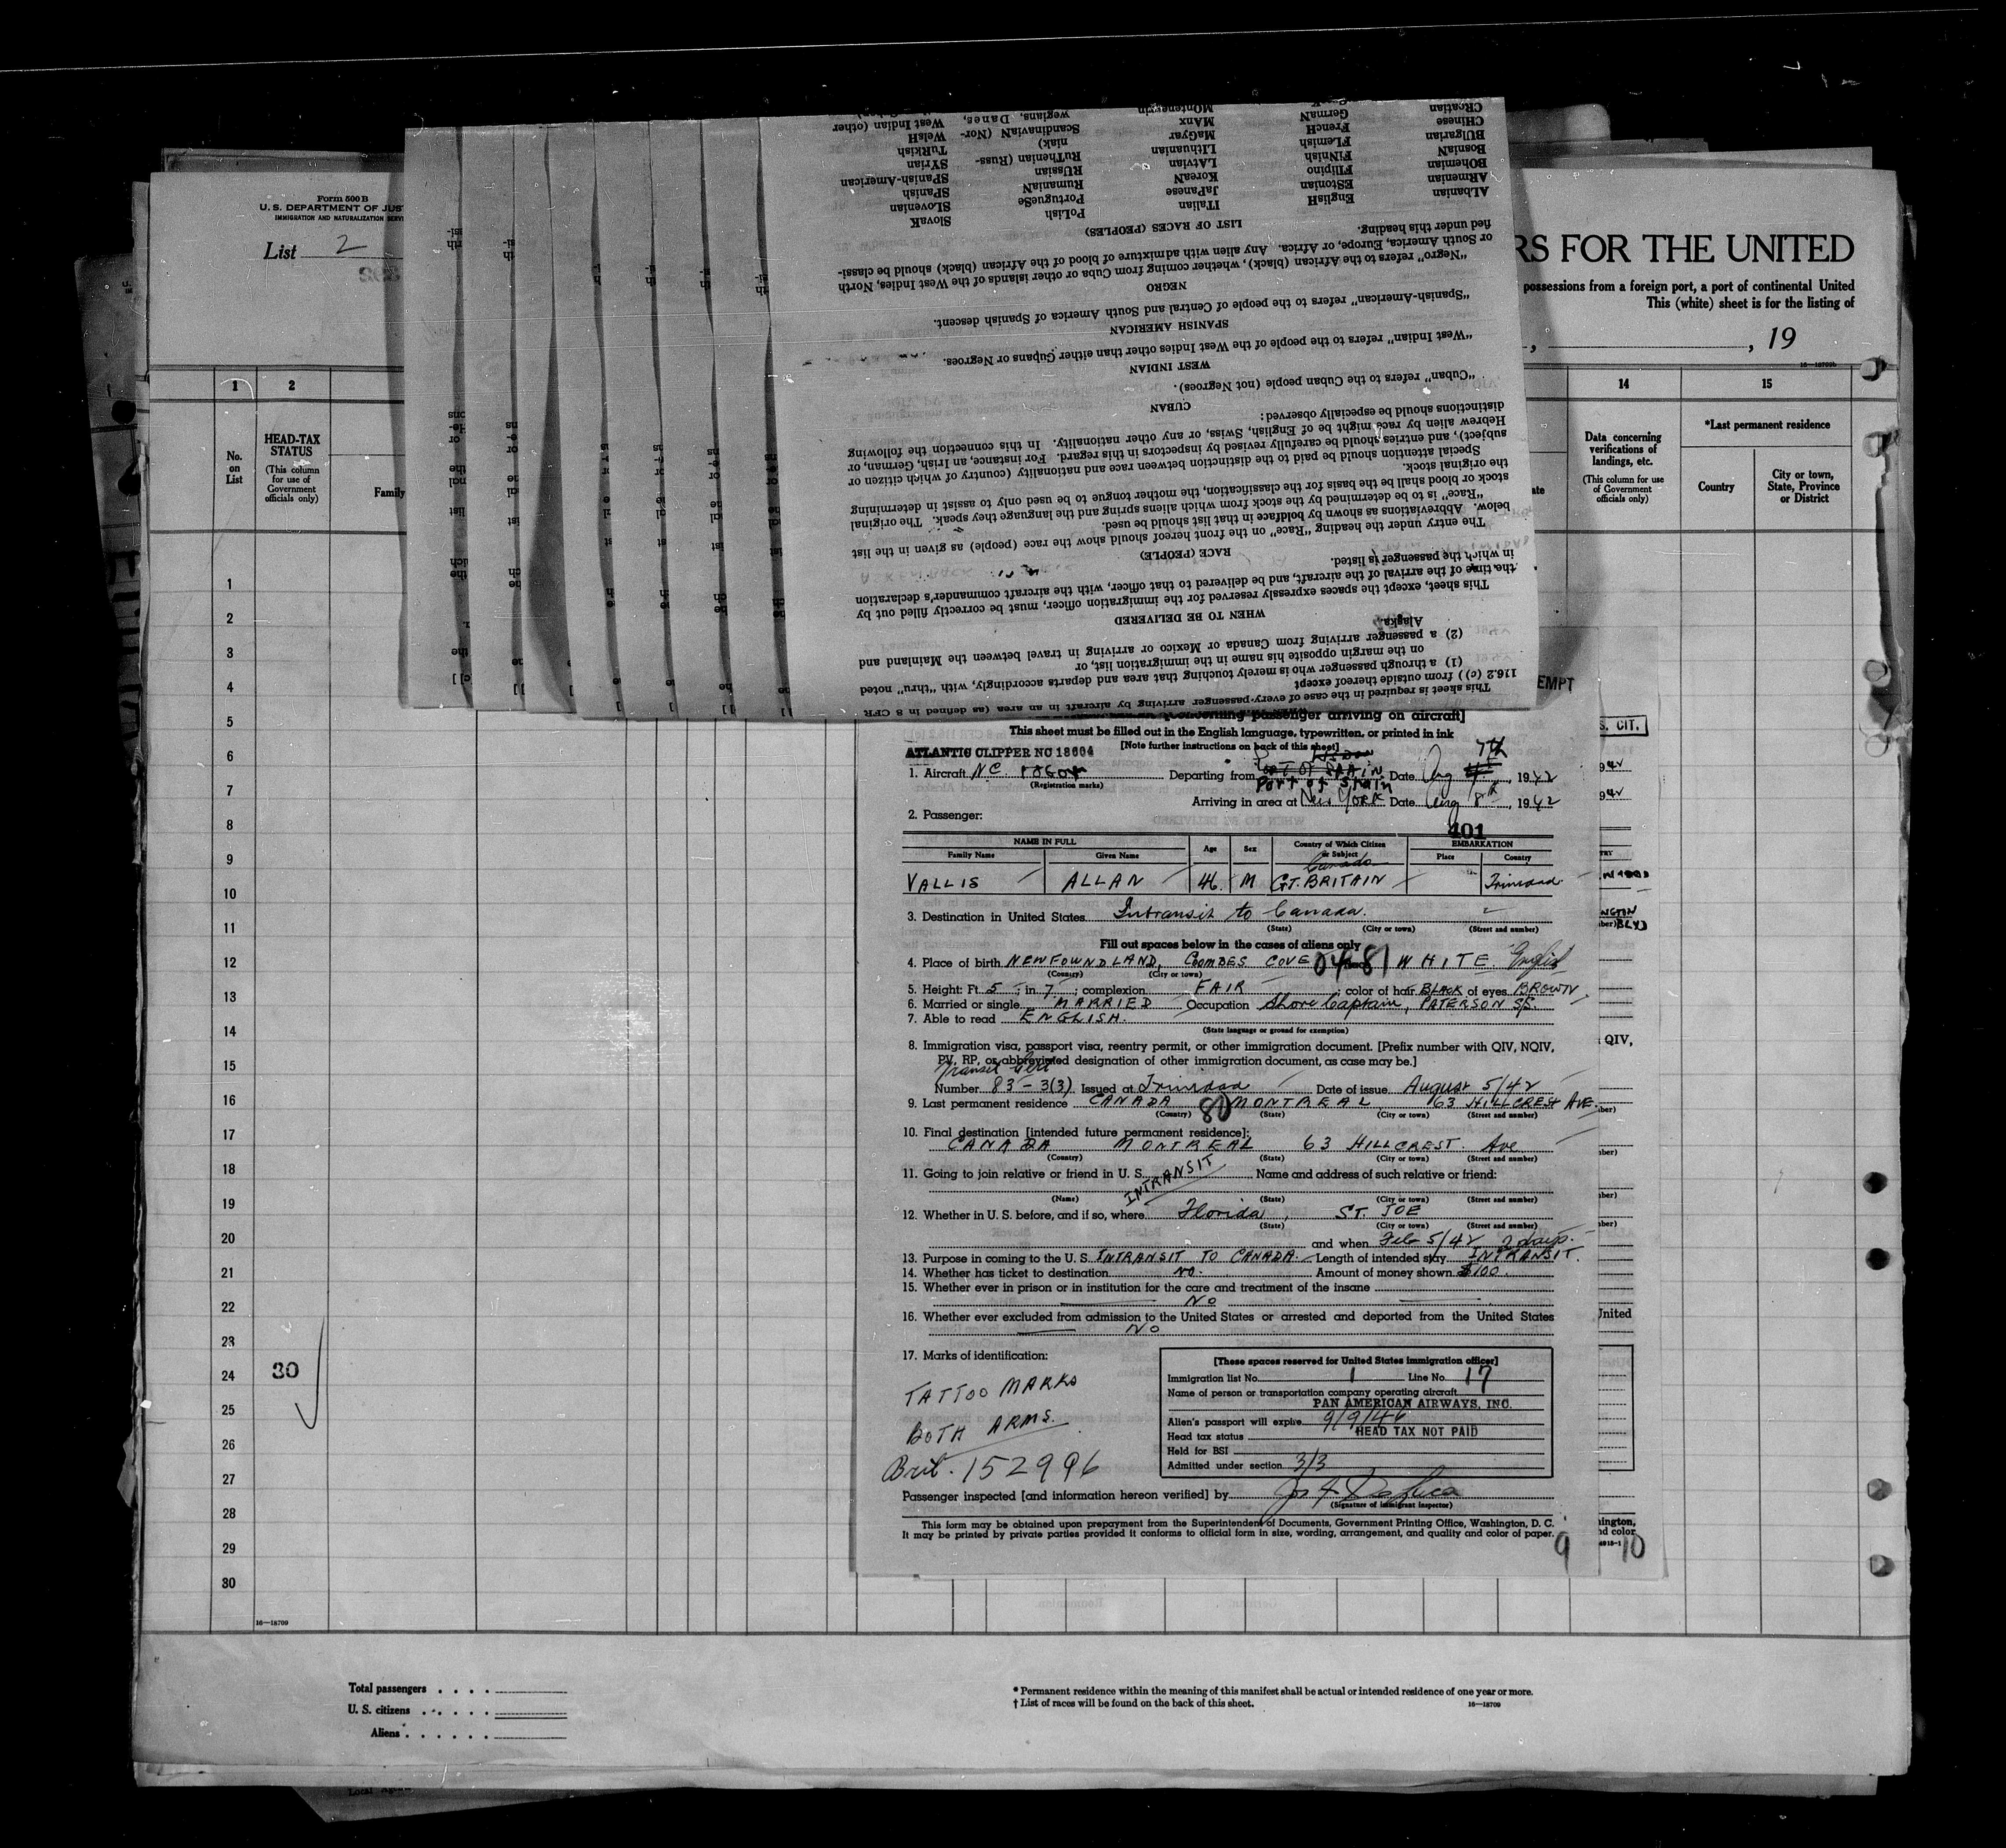 Form 500 B
U.S. DEPARTMENT OF JUS
IMMIGRATION AND NATURALIZATION SERV
List 2
RS FOR THE UNITED
possessions from a foreign port, a port of continental United
This (white) sheet is for the listing of
, 19
16—18709b
1 2 14 15
No. on List
HEAD-TAX STATUS
(This column for use of Government officials only)
Family
Data concerning verifications of landings, etc.
(This column for use of Government officials only)
*Last permanent residence
Country
City or town, State, Province or District
This sheet is required in the case of every passenger arriving by aircraft in an area (as defined in 8 CFR
116.2 (c)) from outside thereof except
(1) a through passenger who is merely touching that area and departs accordingly, with "thru" noted
on the margin opposite his name in the immigration list, or
(2) a passenger arriving from Canada or Mexico or arriving in travel between the Mainland and
Alaska.
WHEN TO BE DELIVERED
This sheet, except the spaces expressly reserved for the immigration officer, must be correctly filled out by
the time of the arrival of the aircraft, and be delivered to that officer, with the aircraft commander's declaration
in which the passenger is listed.
RACE (PEOPLE)
The entry under the heading "Race" on the front hereof should show the race (people) as given in the list
below. Abbreviations as shown by boldface in that list should be used.
"Race" is to be determined by the stock from which aliens spring and the language they speak. The original
stock or blood shall be the basis for the classification, the mother tongue to be used only to assist in determining
the original stock.
Special attention should be paid to the distinction between race and nationality (country of which citizen or
subject), and entries should be carefully revised by inspectors in this regard. For instance, an Irish, German, or
Hebrew alien by race might be of English, Swiss, or any other nationality. In this connection the following
distinctions should be especially observed:
CUBAN
"Cuban" refers to the Cuban people (not Negroes).
WEST INDIAN
"West Indian" refers to the people of the West Indies other than either Cubans or Negroes.
SPANISH AMERICAN
"Spanish-American" refers to the people of Central and South America of Spanish descent.
NEGRO
"Negro" refers to the African (black), whether coming from Cuba or other islands of the West Indies, North
or South America, Europe, or Africa. Any alien with admixture of blood of the African (black) should be classi-
fied under this heading.
LIST OF RACES (PEOPLES)
ALbanian EnglisH ITalian PoLish SlovaK
ARmenian EStonian JaPanese PortugueSe SLovenian
BOhemian FIlipino KoreaN RumaniaN SPanish
BosniaN FiNnish LAtvian RUssian SPanish-American
BULgarian FLemish LIthuanian RuThenian (Russ- SYrian
CHinese FrencH MaGyar niak) TuRkish
CRoatian GermaN MAnx ScandinaviaN (Nor- WelsH
MOntenegrin wegians, Danes, West Indian (other
EMPT
S. CIT.
concerning passenger arriving on aircraft]
This sheet must be filled out in the English language, typewritten, or printed in ink
[Note further instructions on back of this sheet]
ATLANTIC CLIPPER NC 18604
1. Aircraft NC 18604 Departing from Port of Spain Date Aug 7th, 1942
(Registration marks)
Port of Spain
Arriving in area at New York Date Aug 8th, 1942
2. Passenger:
401
NAME IN FULL Age Sex Country of Which Citizen or Subject EMBARKATION
Family Name Given Name Place Country
Canada
VALLIS ALLAN 46 M GT. BRITAIN Trinidad
3. Destination in United States Intransit to Canada.
(State) (City or town) (Street and number)
Fill out spaces below in the cases of aliens only
4. Place of birth NEWFOUNDLAND, COOMBES COVE 81 WHITE. English
(Country) (City or town)
5. Height: Ft. 5; in 7; complexion FAIR; color of hair BLACK of eyes BROWN
6. Married or single MARRIED Occupation Shore Captain, PATERSON S/S.
7. Able to read ENGLISH.
(State language or ground for exemption)
8. Immigration visa, passport visa, reentry permit, or other immigration document. [Prefix number with QIV, NQIV,
PV, RP, or abbreviated designation of other immigration document, as case may be.]
Transit Cert
Number 83-3(3) Issued at Trinidad Date of issue August 5/42
9. Last permanent residence CANADA 80 MONTREAL 63 HILLCREST AVE.
(Country) (State) (City or town) (Street and number)
10. Final destination [intended future permanent residence]:
CANADA MONTREAL 63 HILLCREST. Ave
(Country) (State) (City or town) (Street and number)
11. Going to join relative or friend in U. S. INTRANSIT Name and address of such relative or friend:
(Name) (State) (City or town) (Street and number)
12. Whether in U. S. before, and if so, where Florida, ST. JOE
(State) (City or town) (Street and number)
and when Feb 5/42 2 days.
13. Purpose in coming to the U. S. INTRANSIT TO CANADA. Length of intended stay INTRANSIT.
14. Whether has ticket to destination NO. Amount of money shown $100.
15. Whether ever in prison or in institution for the care and treatment of the insane
No
16. Whether ever excluded from admission to the United States or arrested and deported from the United States
No
17. Marks of identification:
TATTOO MARKS
BOTH ARMS.
Brit. 152996
[These spaces reserved for United States immigration officer]
Immigration list No. 1 Line No. 17
Name of person or transportation company operating aircraft
PAN AMERICAN AIRWAYS, INC.
Alien's passport will expire 9/9/46
Head tax status HEAD TAX NOT PAID
Held for BSI
Admitted under section 3/3
Passenger inspected [and information hereon verified] by
(Signature of immigrant inspector)
This form may be obtained upon prepayment from the Superintendent of Documents, Government Printing Office, Washington, D. C.
It may be printed by private parties provided it conforms to official form in size, wording, arrangement, and quality and color of paper.
9
10
1
2
3
4
5
6
7
8
9
10
11
12
13
14
15
16
17
18
19
20
21
22
23
24 30
25
26
27
28
29
30
16—18709
Total passengers
U. S. citizens
Aliens
* Permanent residence within the meaning of this manifest shall be actual or intended residence of one year or more.
† List of races will be found on the back of this sheet.
16—18709